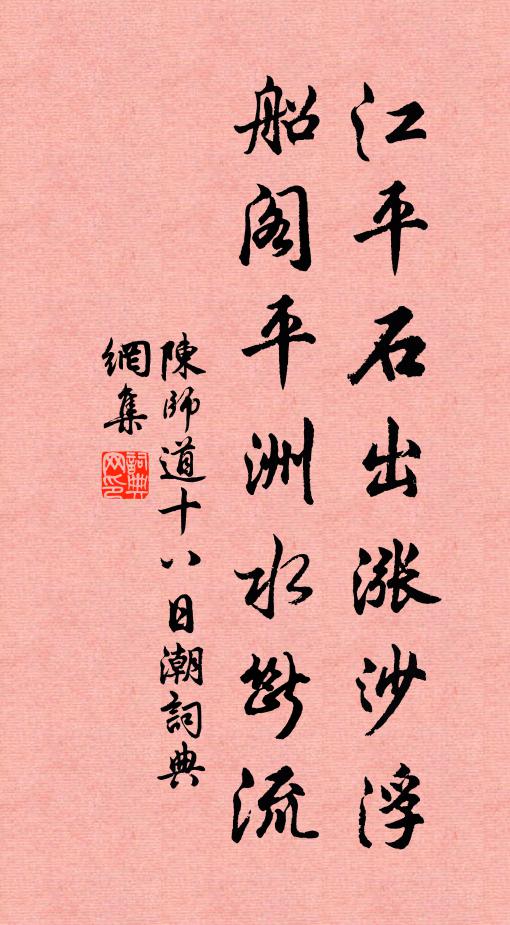 江平石出漲沙浮
船閣平洲水斷流
陳師道十八日潮詞典
網集
詞典
网印